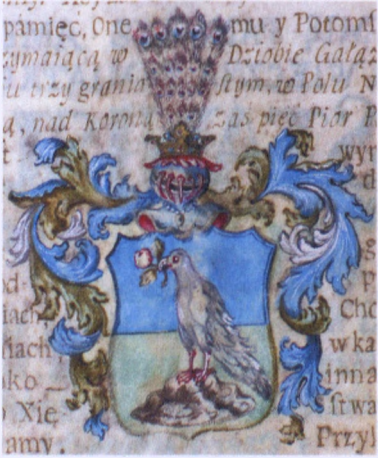 pamięć, One mu y Potomſ
zymaiącą w Dziobie Gałąz
u trzy grania stym, w Polu N
ą, nad Koroną zas pięć Pior P
t wyr
g
d P
iach Cho
iach w ka
ko inna
Xię stwa
amy. Przyl